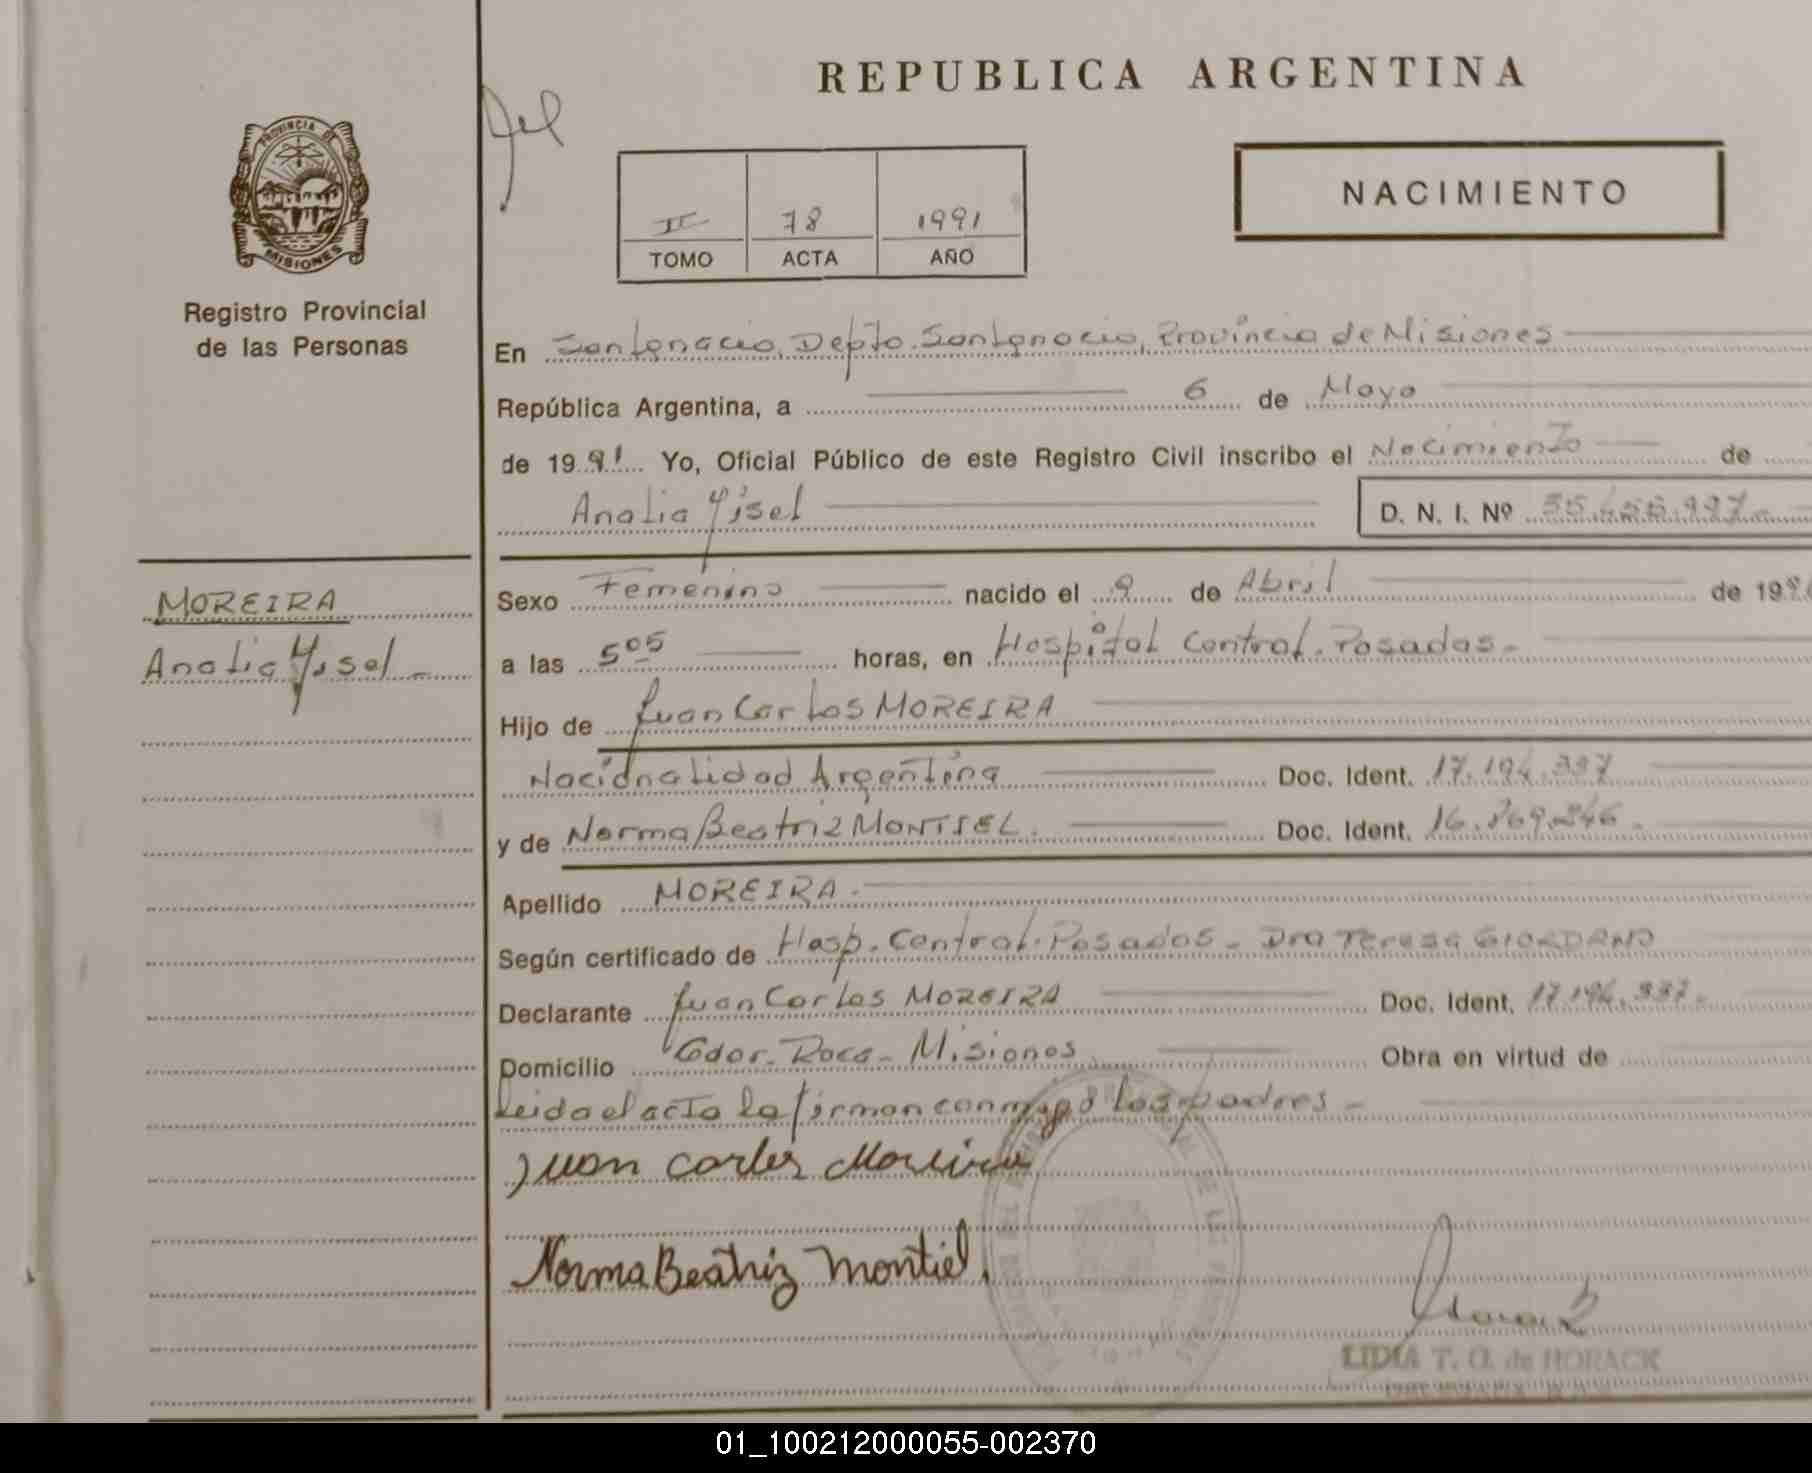 REPUBLICA ARGENTINA
NACIMIENTO
II 78 1991
TOMO ACTA AÑO
PROVINCIA DE
MISIONES
Registro Provincial
de las Personas
En San Ignacio, Depto. San Ignacio, Provincia de Misiones
República Argentina, a 6 de Mayo
de 1991 Yo, Oficial Público de este Registro Civil inscribo el Nacimiento de
Analia Yisel D. N. I. Nº
MOREIRA
Analia Yisel -
Sexo Femenino nacido el 9 de Abril de 199
a las 5 05 horas, en Hospital Central. Posadas -
Hijo de Juan Carlos MOREIRA
Nacionalidad Argentina Doc. Ident. 17.194.337
y de Norma Beatriz MONTIEL. Doc. Ident. 16.
Apellido MOREIRA.
Según certificado de Hosp. Central. Posadas - Dra Teresa GIORDANO
Declarante Juan Carlos MOREIRA Doc. Ident. 17.194.337.
Domicilio Gdor. Roca - Misiones Obra en virtud de
Leida el acta la firman conmigo los padres -
Juan Carlos Moreira
Norma Beatriz Montiel.
LIDIA T. O. de HORACK
01_100212000055-002370